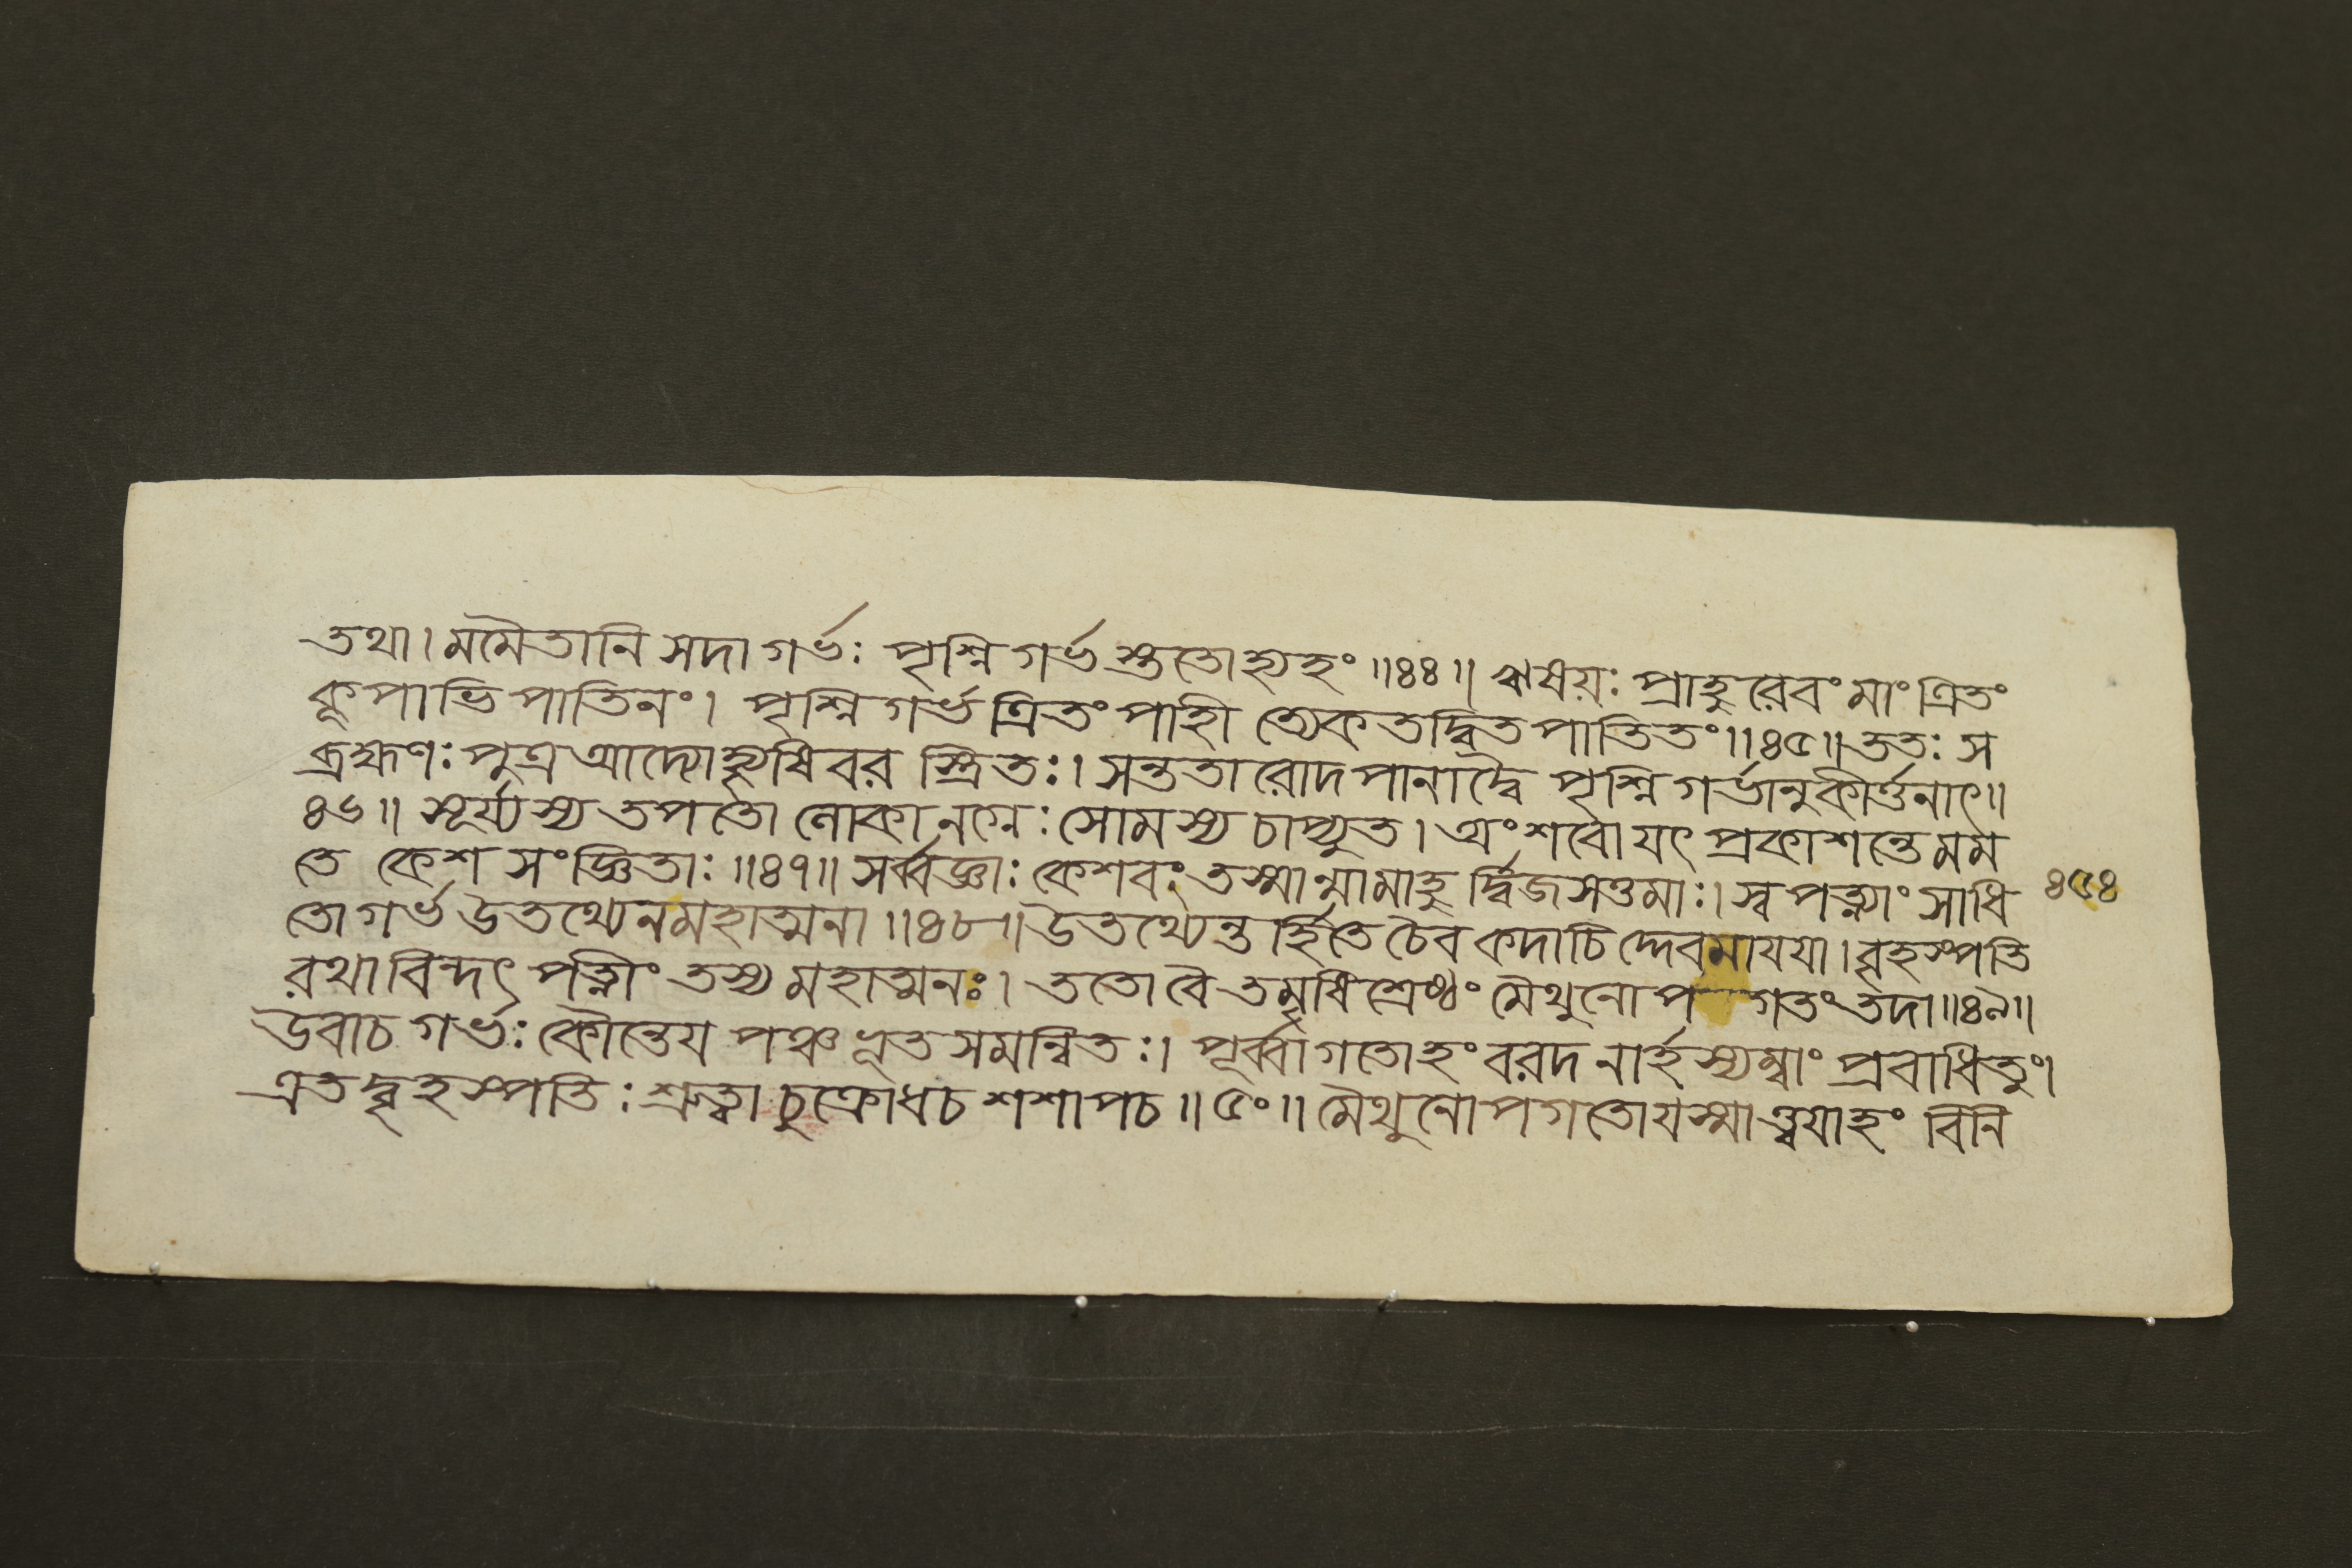 তথা। মমৈতানি সদা গর্ভঃ পৃশ্নিগর্ভস্ততোহ্যহং ॥৪৪॥ ঋষয়ঃ প্রাহুরেবং মাং ত্রিতং
কূপাভিপাতিনং। পৃশ্নিগর্ভত্রিতং পাহী ত্যেকতদ্বিতপাতিতং॥৪৫॥ ততঃ স
ব্রহ্মণঃ পুত্র আদ্যোহ্যৃষিবর স্ত্রিতঃ। সন্ততারোদপানাদ্বৈ পৃশ্নিগর্ভানুকীর্ত্তনাৎ॥
৪৬॥ সূর্য্যস্য তপতো লোকানগ্নেঃ সোমস্য চাপ্যুত। অংশবো যৎ প্রকাশন্তে মম
তে কেশসংজ্ঞিতাঃ॥৪৭॥ সর্ব্বজ্ঞাঃ কেশবং তস্মান্মামাহু র্দ্বিজসত্তমাঃ। স্বপত্ন্যাং সাধি ৪৫৪
তো গর্ভ উতথ্যেন মহাত্মনা॥৪৮॥ উতথ্যেন্তর্হিতে চৈব কদাচিদ্দেবমাযযা। বৃহস্পতি
রথাবিন্দৎ পত্নীং তস্য মহাত্মনঃ। ততো বৈ তমৃষিশ্রেষ্ঠং মৈথুনোপ গতং তদা॥৪৯॥
উবাচ গর্ভঃ কৌন্তেয পঞ্চভূতসমন্বিতঃ। পূর্ব্বাগতোহং বরদ নার্হস্যম্বাং প্রবাধিতুং।
এতদ্বৃহস্পতিঃ শ্রুত্বা চুক্রোধ চ শশাপ চ॥৫০॥ মৈথুনোপগতো যস্মাত্ত্বযাহং বিনি